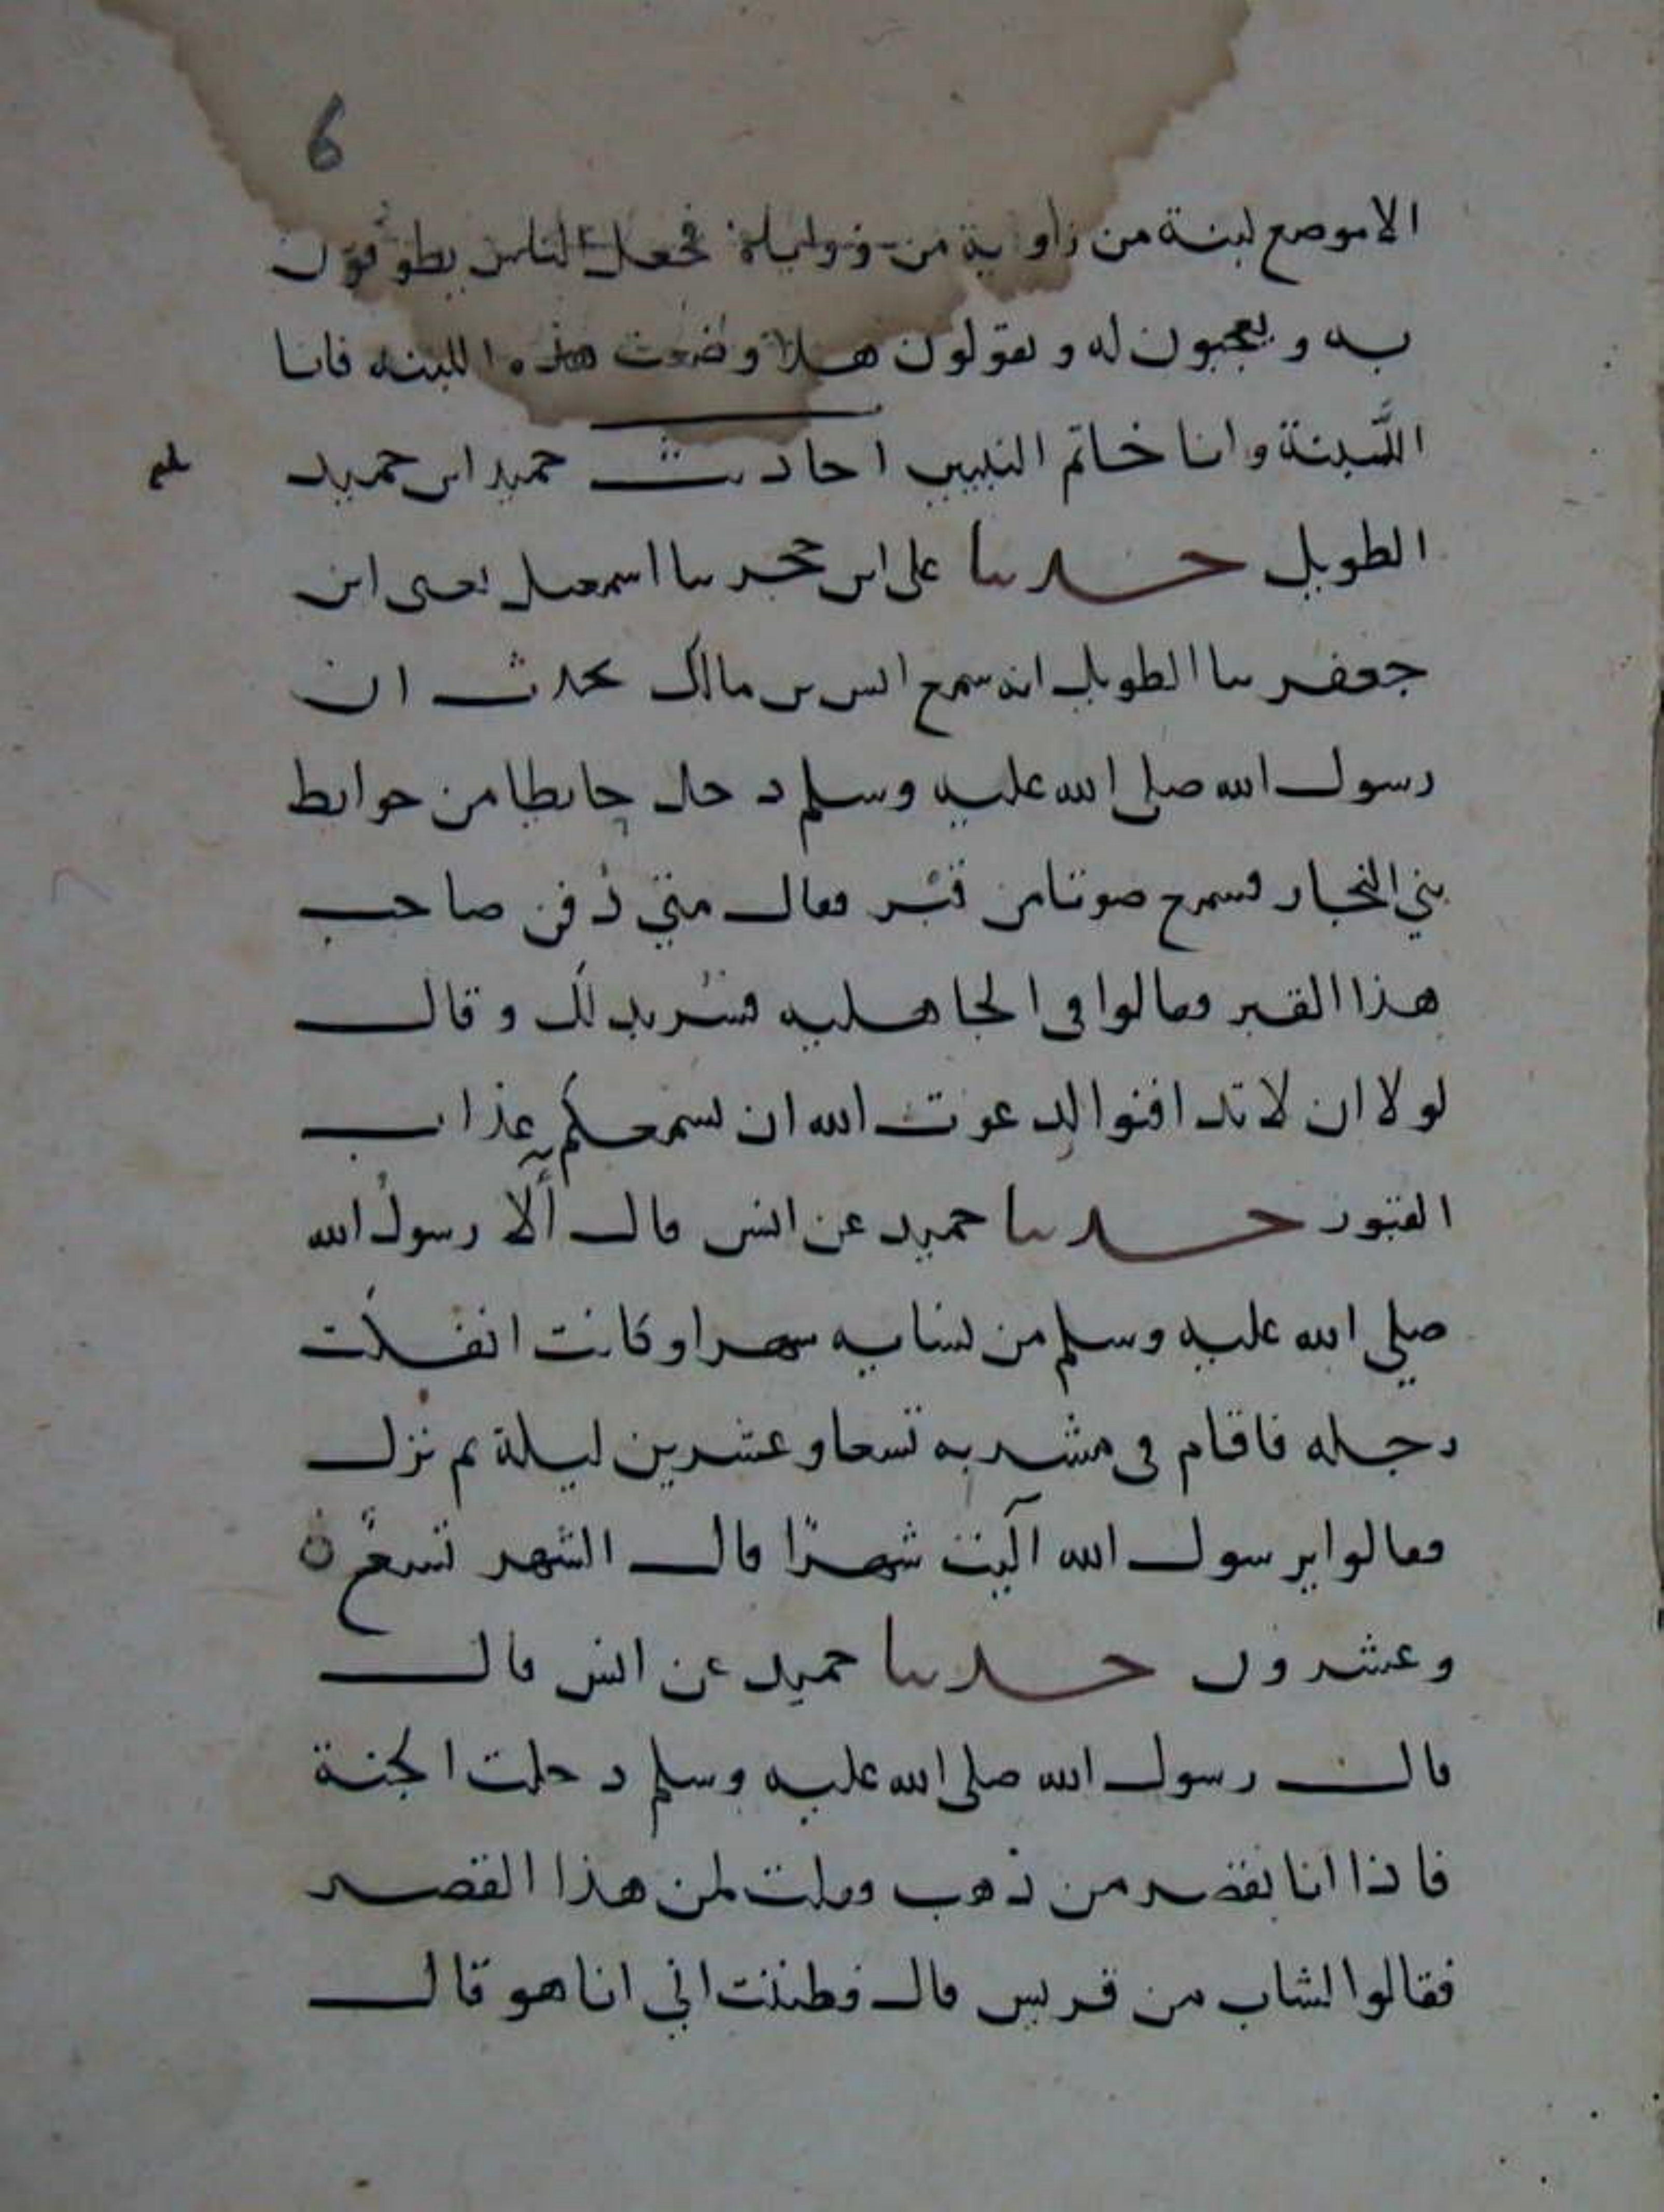 6
الا موضع لبنة من زاوية من زواياه فجعل الناس يطوفون
به ويعجبون له ويقولون هلا وضعت هذه اللبنة فانا
اللَّبنة وانا خاتم النبيين احاديث حميد ابن حميد
الطويل حدثنا على ابن حجر ثنا اسمعيل يعنى ابن
جعفر ثنا الطويل انه سمع انس بن مالك يحدث ان
رسول الله صلى الله عليه وسلم دخل حايطا من حوايط
بني النجار فسمع صوتا من قبر فقال متي دُفن صاحب
هذا القبر فقالوا فى الجاهلية فسُر بذلك وقال
لولا ان لا تدافنوا لدعوت الله ان يسمعكم عذاب
القبور حدثنا حميد عن انس قال آلا رسولُ الله
صلي الله عليه وسلم من نسايه شهرا وكانت انفكَّت
رجله فاقام فى مشربة تسعا وعشرين ليلة ثم نزل
فقالوا يرسول الله آليت شهرًا قال الشهر تسعٌ
وعشرون حدثنا حميد عن انس قال
قال رسول الله صلى الله عليه وسلم دخلت الجنة
فاذا انا بقصر من ذهب فقلت لمن هذا القصر
فقالوا لشاب من قريش قال فظننت اني انا هو قال